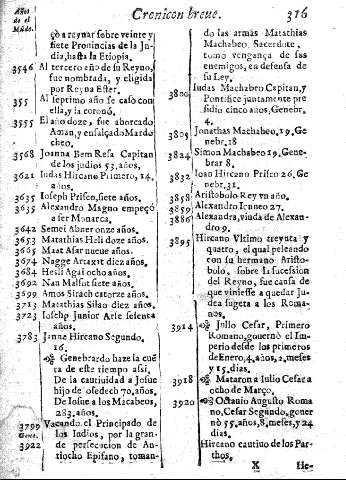 Cronicon breue. 316
Años
de el
Mũdo.
çò a reynar sobre veinte y
siete Prouincias de la In-
dia, hasta la Etiopia.
3546 Al tercero año de su Reyno,
fue nombrada, y eligida
por Reyna Ester.
355 Al septimo año se casò con
ella, y la coronò.
3555 El año doze, fue ahorcado
Aman, y ensalçado Mardo
cheo.
3568 Joanna Bem Resa Capitan
de los judios 53, años.
3621 Iudas Hircano Primero, 14,
años.
3635 Ioseph Prisco, siete años.
3635 Alexandro Magno empeçò
a ser Monarca.
3642 Semei Abner onze años.
3653 Matathias Heli doze años.
3665 Maat Asar nueue años.
3674 Nagge Artaxat diez años.
3684 Hesli Agai ocho años.
3692 Nan Malsot siete años.
3699 Amos Sirach catorze años.
3713 Matathias Silao diez años.
3723 Ioseph Junior Arse sesenta
años.
3783 Janne Hircano Segundo,
16.
Genebrardo haze la cuẽ
ra de este tiempo assi,
De la cautiuidad a Josue
hijo de Josedech 70, años,
De Iosue a los Macabeos,
283, años.
3799 Vacando el Principado de
los Iudios, por la gran-
3922 de persecucion de An-
tiocho Epifano, toman-
do las armas Matathias
Machabeo, Sacerdote,
tomò vengança de sus
enemigos, en defensa de
su Ley.
3800 Iudas Machabeo Capitan, y
Pontifice juntamente pre
sidio cinco años, Genebr.
4.
3805 Jonathas Machabeo, 19, Ge
nebr. 18
3824 Simon Machabeo 19, Gene-
brar 8.
3832 Ioan Hircano Prisco 26, Ge
nebr. 31.
3858 Aristobolo Rey vn año.
3859 Alexandro Ianneo 27.
3886 Alexandra, viuda de Alexan-
dro 9.
3895 Hircano Vltimo treynta y
quatro, el qual peleando
con su hermano Aristo-
bolo, sobre la sucession
del Reyno, fue causa de
que viniesse a quedar Ju-
dea sugeta a los Roma-
nos.
3914 Julio Cesar, Primero
Romano, gouernò el Im-
perio desde los primeros
de Enero, 4, años, 2, meses
y 15, dias.
3918 Mataron a Iulio Cesar a
ocho de Março.
3920 Octauio Augusto Roma
no, Cesar Segundo, gouer
nò 55, años, 8, meses, y 24
dias.
Hircano cautiuo de los Par-
thos,
X